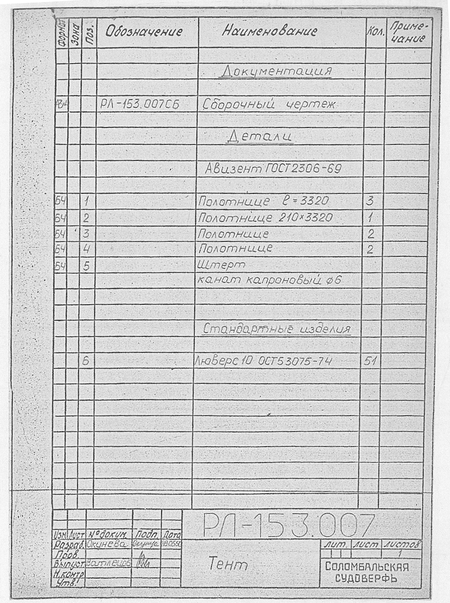 Формат Зона Поз. Обозначение Наименование Кол. Приме-чание
Документация
РЛ-153.007СБ Сборочный чертеж
Детали
Авизент ГОСТ2306-69
БЧ 1 Полотнище ℓ=3320 3
БЧ 2 Полотнище 210×3320 1
БЧ 3 Полотнище 2
БЧ 4 Полотнище 2
БЧ 5 Штерт
канат капроновый ф6
Стандартные изделия
6 Люверс 10 ОСТ53075-74 51
РЛ-153.007
Изм Лист № докум. Подп. Дата
Разраб. Окунева
Пров.
Выпуст.
Н.контр
Утв.
Тент
Лит. Лист Листов
1 1
СОЛОМБАЛЬСКАЯ
СУДОВЕРФЬ